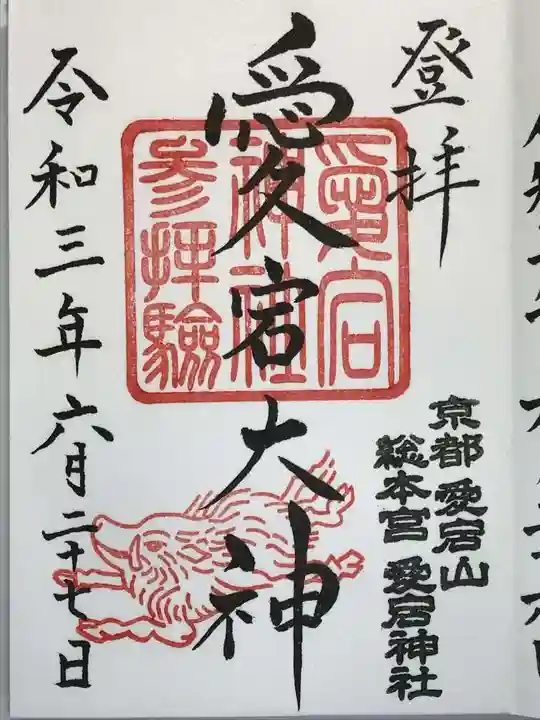 登拝
京都 愛宕山
総本宮 愛宕神社
愛宕
神社
参拝験
愛宕大神
令和三年六月二十七日